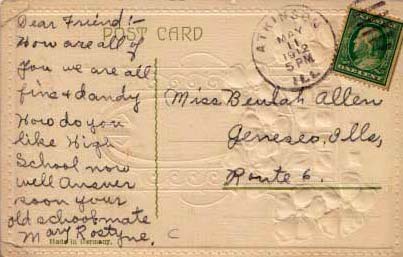 Dear Friend:-
How are all of
You we are all
fine & dandy
How do you
like High
School now
well Answer
soon your
old schoolmate
Mary Rostyne.
Made in Germany.
C
POST CARD
ATKINSON
MAY
11
1912
5 PM
ILL
Miss Beulah Allen
Geneseo, Ills,
Route 6.